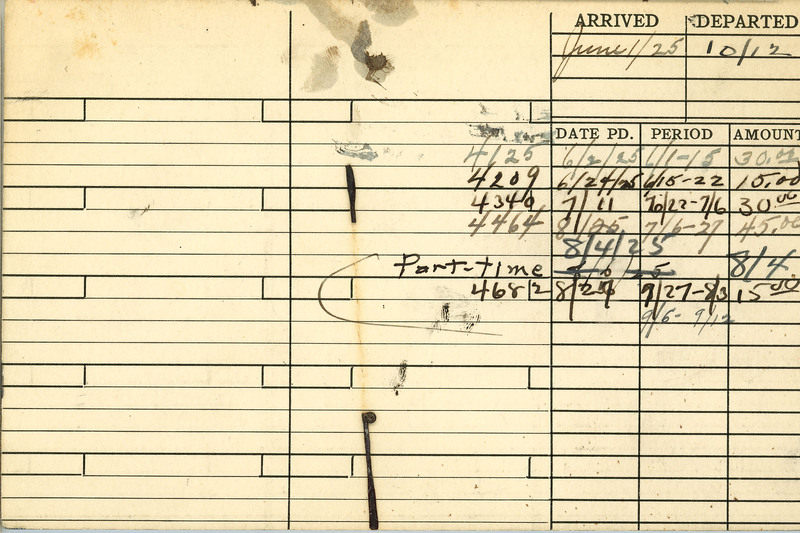 ARRIVED DEPARTED
June 1/25 10/12
DATE PD. PERIOD AMOUNT
4125 6/2/25 6/1-15 30.00
4209 6/24/25 6/15-22 15.00
4349 7/11 6/22-7/6 30 00
4464 8/ 25 7/6-27 45.00
8/4/25
Part-time 8/4.
4682 8/2 9/27-8/3 15 00
9/6- 9/12